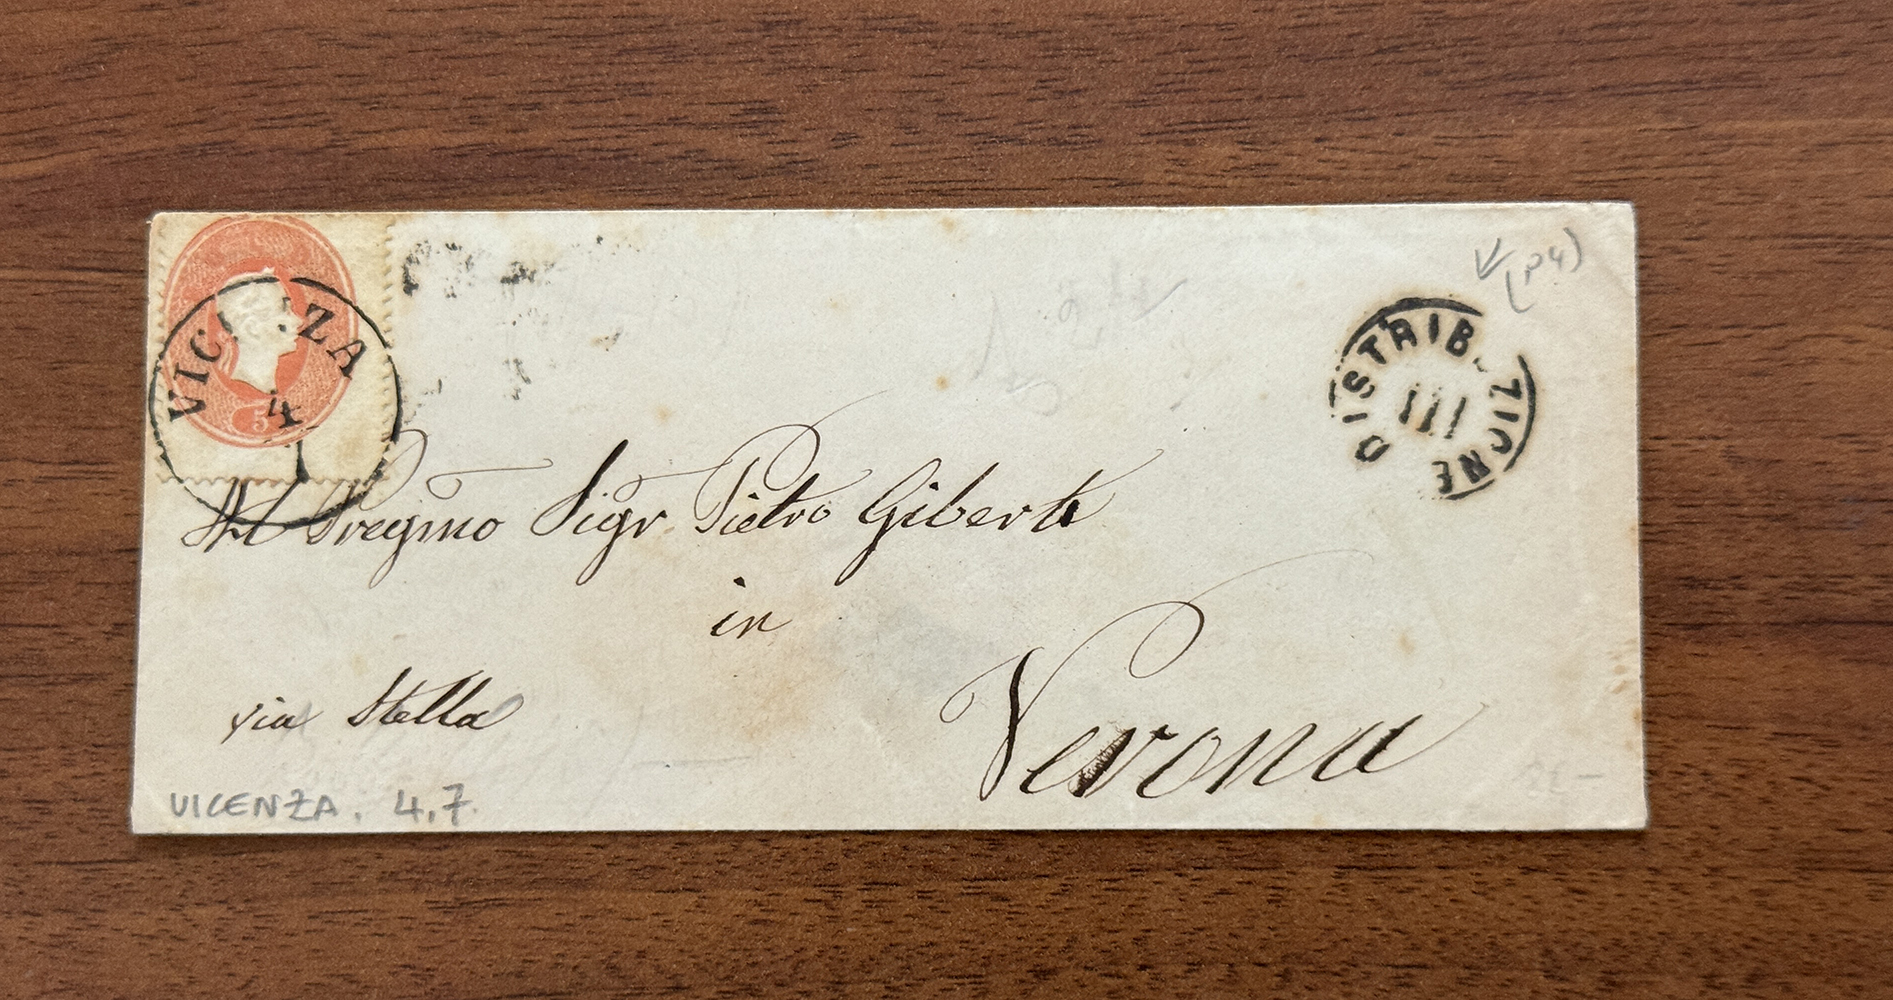 VICENZA
4
1
5
V (P4)
DISTRIBUZIONE
III
Al Pregmo Sigr Pietro Giberti
in
Verona
via Stella
VICENZA. 4.7.